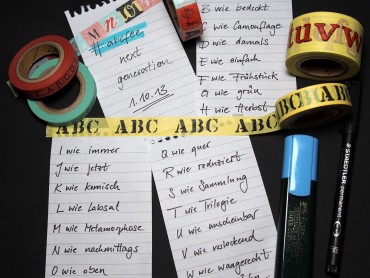 M n o
#abcfee
next
generation
1.10.13
B wie bedeckt
C wie Camouflage
D wie damals
E wie einfach
F wie Frühstück
G wie grün
H wie Herbst
tuvw
ABC
ABC ABC ABC ABC ABC
I wie immer
J wie jetzt
K wie komisch
L wie Labsal
M wie Metamorphose
N wie nachmittags
O wie oben
Q wie quer
R wie reduziert
S wie Sammlung
T wie Trilogie
U wie unscheinbar
V wie verlockend
W wie waagerecht
STAEDTLER permanent